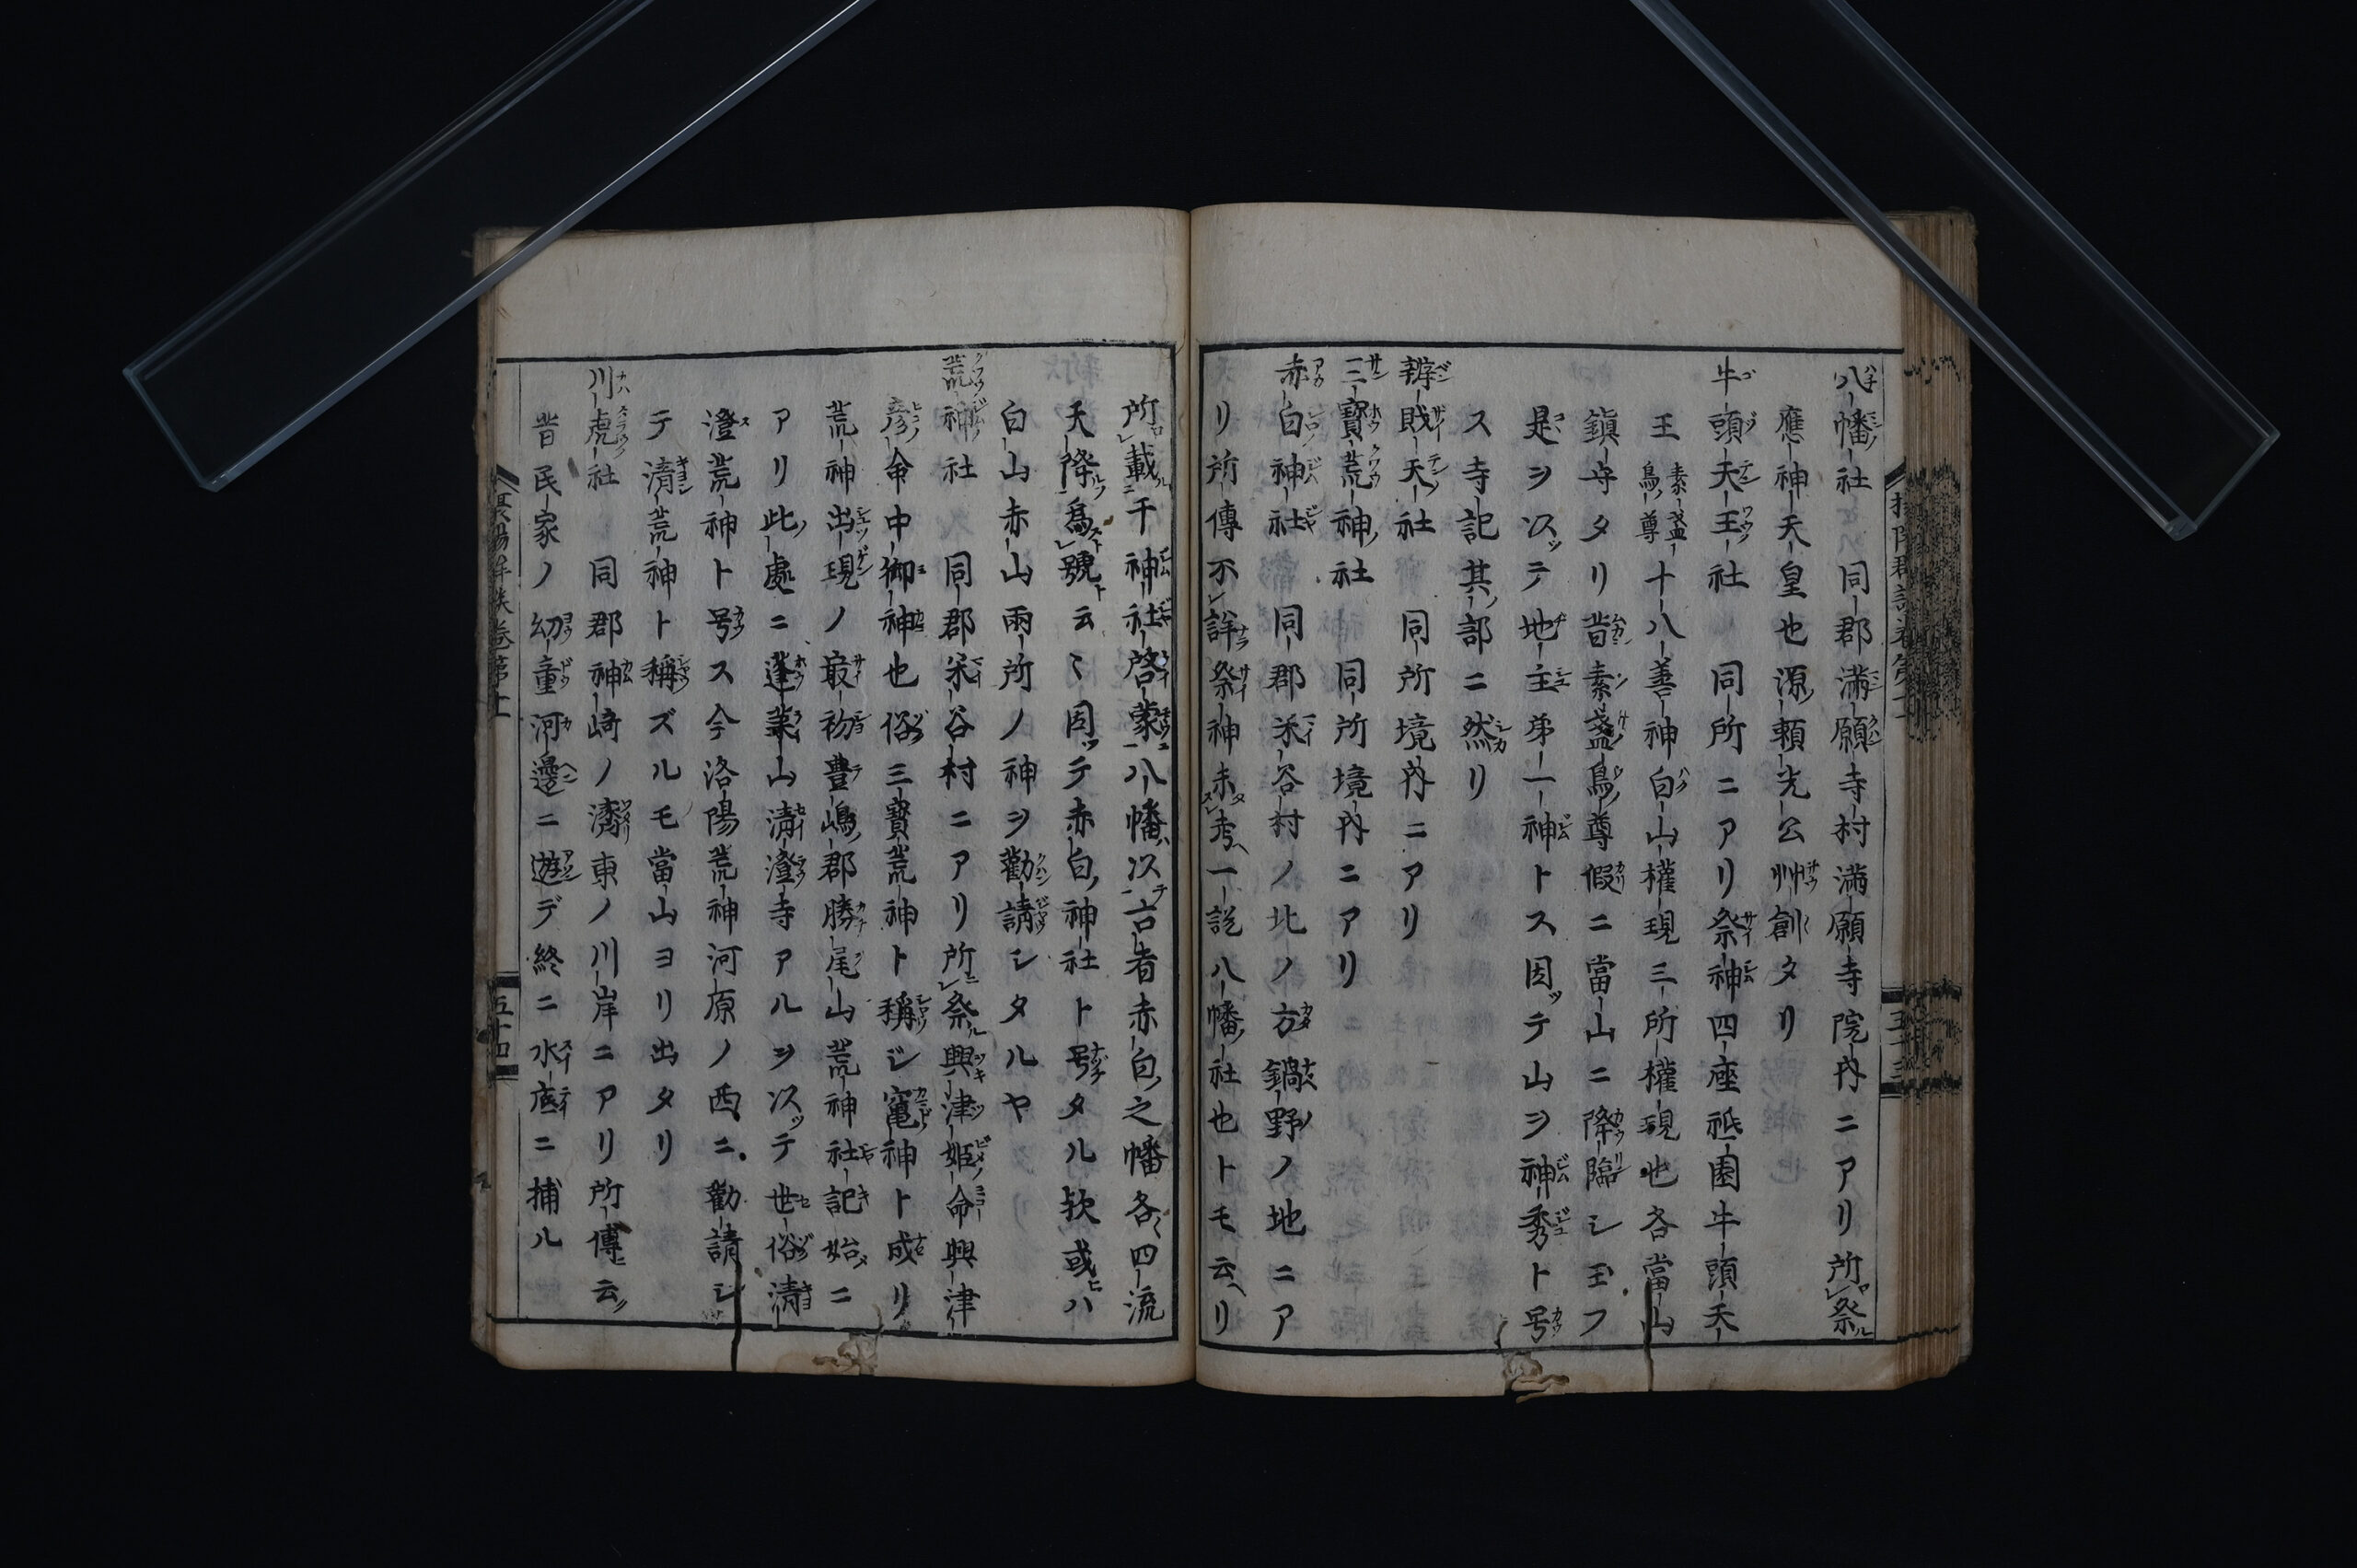 八幡社 同郡満願寺村満願寺院内ニアリ所祭
應神天皇也源頼光公艸創タリ
牛頭天王社 同所ニアリ祭神四座祗園牛頭天
王素盞烏尊十八善神白山權現三所權現也各當山
鎮守タリ昔素盞烏尊假ニ當山ニ降臨シ玉フ
是ヲ以ッテ地主第一神トス因ッテ山ヲ神秀ト号
ス寺記其部ニ然リ
辨財天社 同所境内ニアリ
三寶荒神社 同所境内ニアリ
赤白神社 同郡米谷村ノ北ノ方鍋野ノ地ニア
リ所傳不詳祭神未考一説八幡社也トモ云ヘリ
所載干神社啓蒙八幡以古者赤白之幡各四流
天降爲號云〻因ッテ赤白神社ト号タル欤或ハ
白山赤山兩所ノ神ヲ勸請シタルヤ
荒神社 同郡米谷村ニアリ所祭興津姫命興津
彦命中御神也俗三寶荒神ト稱ジ竃神ト成リ
荒神出現ノ最初豊嶋郡勝尾山荒神社記始ニ
アリ此處ニ蓬莱山清澄寺アルヲ以ッテ世俗清
澄荒神ト号ス今洛陽荒神河原ノ西ニ勸請シ
テ清荒神ト稱ズルモ當山ヨリ出タリ
川虎社 同郡神崎ノ濟東ノ川岸ニアリ所傳云
昔民家ノ幼童河邊ニ遊デ終ニ水底ニ捕ル
五十四